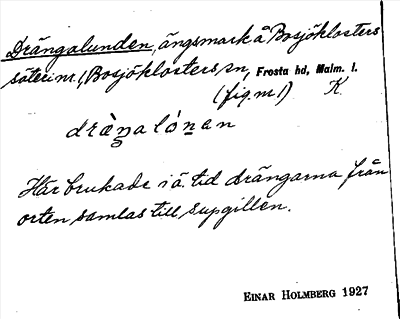 Drängalunden, ängsmark å Bosjöklosters
säteri nr 1, Bosjöklosters sn, Frosta hd, Malm. l.
(fig. nr 1) K.
dràŋalónan
Här brukade i ä. tid drängarna från
orten samlas till supgillen.
EINAR HOLMBERG 1927